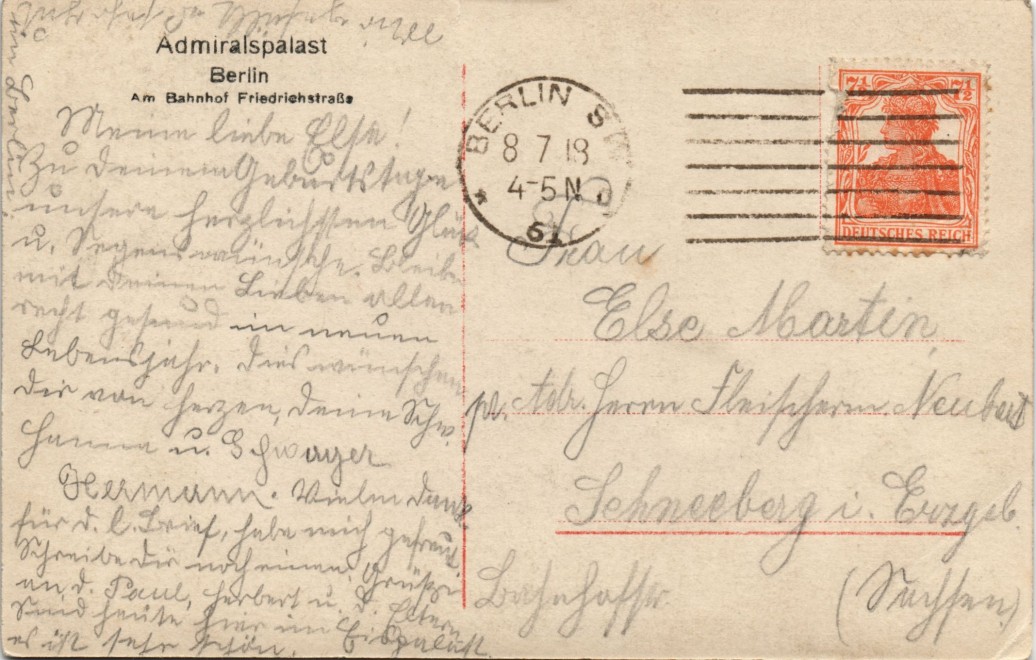 Admiralspalast
Berlin
Am Bahnhof Friedrichstraße
Meine liebe Else!
Zu Deinem Geburtstage
unsere herzlichsten Glück
u. Segenswünsche. Bleibe
mit Deinen Lieben allen
recht gesund im neuen
Lebensjahr. Dies wünschen
Dir von Herzen, Deine Schw.
Hanna u. Schwager
Hermann. Vielen Dank
für d. l. Brief, habe mich gefreut.
Schreibe Dir noch einen. Grüße
an d. Paul, Herbert u. d. Eltern
Sind heute hier im Eispalast.
es ist sehr schön.
in Berlin
BERLIN SW
8 7 18
4-5 N
61
7½ 7½
DEUTSCHES REICH
Frau
Else Martin
pr. Adr. Herrn Fleischerm Neubert
Schneeberg i. Erzgeb.
Bahnhofstr.
(Sachsen)